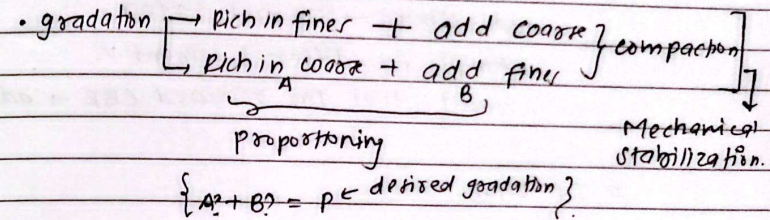 • gradation → Rich in fines + add coarse } compaction
→ Rich in coarse + add fines
A B
proportioning
Mechanical
stabilization.
{ A? + B? = P ← desired gradation }